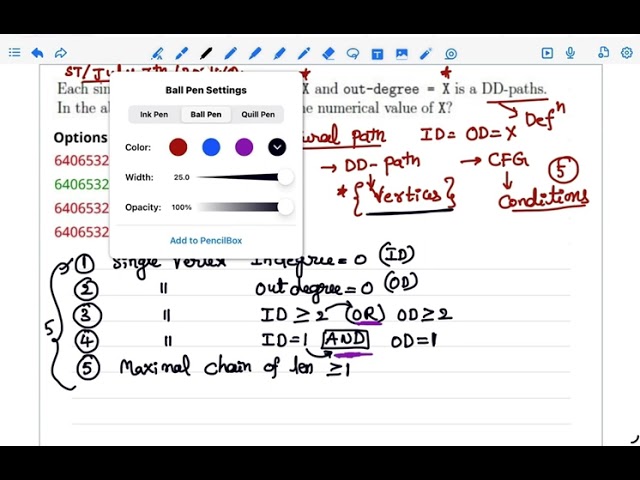 ST/July
Each sin X and out-degree = X is a DD-paths.
In the ab e numerical value of X?
Ball Pen Settings
Ink Pen Ball Pen Quill Pen
Color:
Width: 25.0
Opacity: 100%
Add to PencilBox
Options
6406532
6406532
6406532
6406532
ural path ID = OD = X Defⁿ
→ DD-path → CFG ⑤
* {Vertices} Conditions
① Single Vertex Indegree = 0 (ID)
② " Outdegree = 0 (OD)
③ " ID ≥ 2 (OR) OD ≥ 2
④ " ID = 1 AND OD = 1
⑤ Maximal chain of len ≥ 1
5